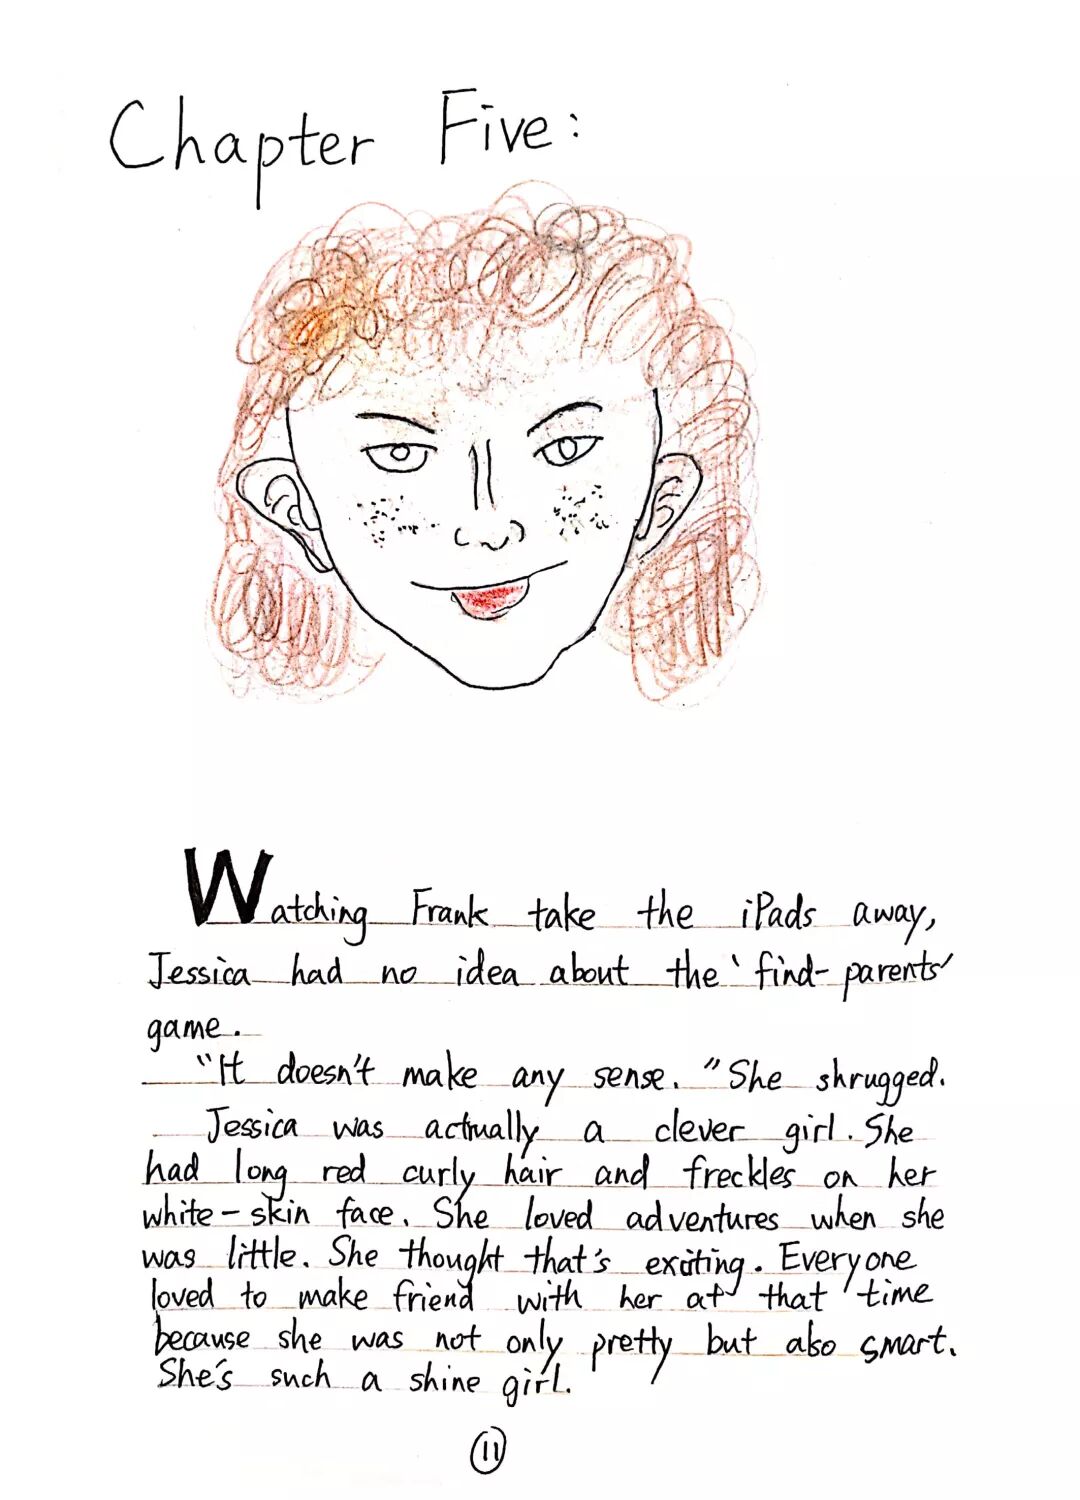 Chapter Five:
Watching Frank take the iPads away,
Jessica had no idea about the 'find-parents'
game.
"It doesn't make any sense. "She shrugged.
Jessica was actually a clever girl. She
had long red curly hair and freckles on her
white-skin face. She loved adventures when she
was little. She thought that's exciting. Everyone
loved to make friend with her at that time
because she was not only pretty but also smart.
She's such a shine girl.
11